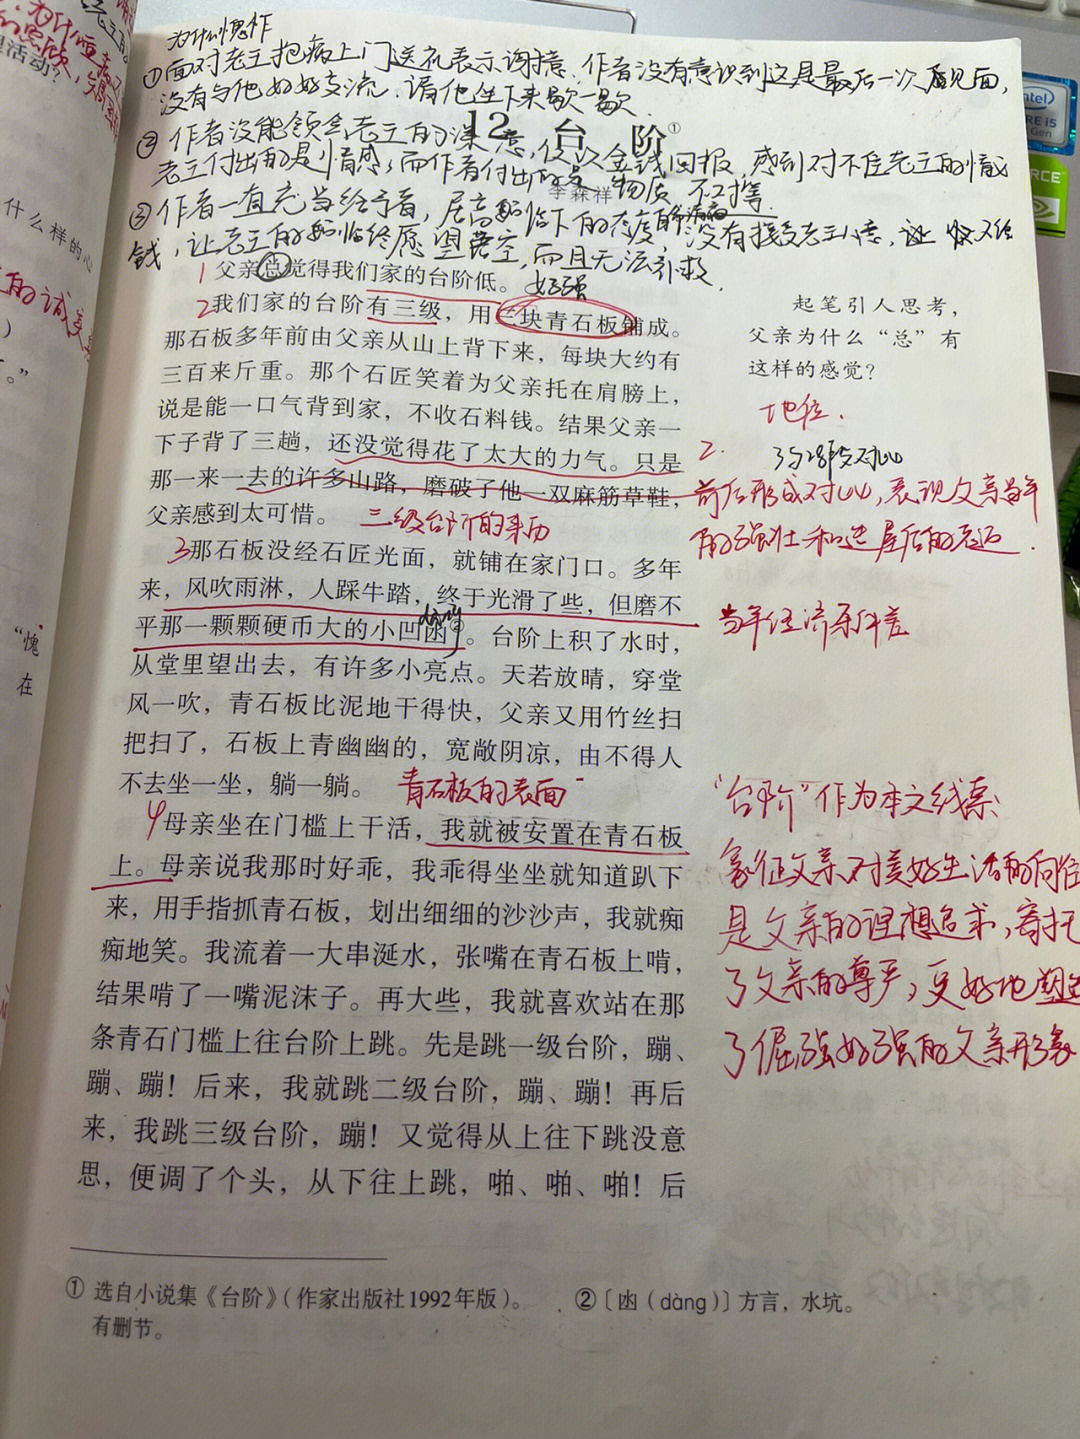 为什么愧怍
①面对老王抱病上门送礼表示谢意，作者没有意识到这是最后一次见面，
没有与他好好交流，请他坐下来歇一歇
12 台阶①
②作者没能领会老王的深意，仅以金钱回报，感到对不住老王的情
老王付出的是情感，而作者付出的是物质 不对等
李森祥
③作者一直充当给予者，居高临下的态度 没有接受老王心意，
钱，让老王的临终愿望落空，而且无法补救
1 父亲总觉得我们家的台阶低。 好强
2 我们家的台阶有三级，用三块青石板铺成。
那石板多年前由父亲从山上背下来，每块大约有
三百来斤重。那个石匠笑着为父亲托在肩膀上，
说是能一口气背到家，不收石料钱。结果父亲一
下子背了三趟，还没觉得花了太大的力气。只是
那一来一去的许多山路，磨破了他一双麻筋草鞋，
父亲感到太可惜。 三级台阶的来历
3 那石板没经石匠光面，就铺在家门口。多年
来，风吹雨淋，人踩牛踏，终于光滑了些，但磨不
dàng
平那一颗颗硬币大的小凹凼②。台阶上积了水时，
从堂里望出去，有许多小亮点。天若放晴，穿堂
风一吹，青石板比泥地干得快，父亲又用竹丝扫
把扫了，石板上青幽幽的，宽敞阴凉，由不得人
不去坐一坐，躺一躺。 青石板的表面
4 母亲坐在门槛上干活，我就被安置在青石板
上。母亲说我那时好乖，我乖得坐坐就知道趴下
来，用手指抓青石板，划出细细的沙沙声，我就痴
痴地笑。我流着一大串涎水，张嘴在青石板上啃，
结果啃了一嘴泥沫子。再大些，我就喜欢站在那
条青石门槛上往台阶上跳。先是跳一级台阶，蹦、
蹦、蹦！后来，我就跳二级台阶，蹦、蹦！再后
来，我跳三级台阶，蹦！又觉得从上往下跳没意
思，便调了个头，从下往上跳，啪、啪、啪！后
起笔引人思考，
父亲为什么“总”有
这样的感觉？
地位．
2.
与28阶对比
前后形成对比，表现父亲当年
的强壮和建屋后的衰迈．
当年经济条件差
“台阶”作为本文线索
象征父亲对美好生活的向往
是父亲的理想追求，寄托
了父亲的尊严，更好地塑造
了倔强好强的父亲形象
① 选自小说集《台阶》（作家出版社1992年版）。
有删节。
②〔凼（dàng）〕方言，水坑。
活动？
什么样的心
的诚
）
。”
“愧
在
intel
i5
Gen